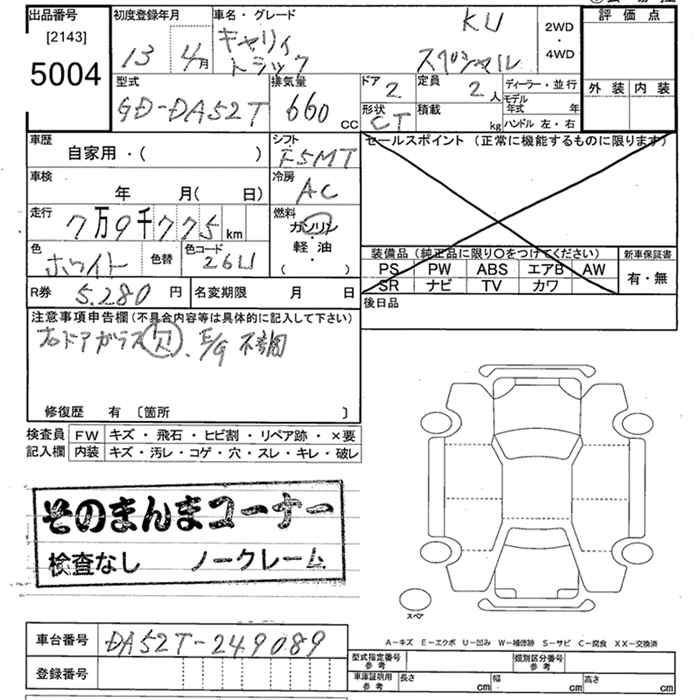 出品番号
[2143]
5004
初度登録年月
13 4月
車名・グレード
キャリィ
トラック
KU
スペシャル
2WD
・
4WD
評価点
外装 内装
型式
GD-DA52T
排気量
660 CC
ドア 2
形状 CT
定員 2 人
積載 kg
ディーラー・並行
モデル年式 年
ハンドル 左・右
車歴
自家用・( )
シフト
F5MT
車検
年 月( 日)
冷房
AC
走行
7万9千775 km
燃料
ガソリン
軽油
( )
色
ホワイト
色替
色コード
26U
R券 5.280 円
名変期限 月 日
セールスポイント (正常に機能するものに限ります)
装備品 (純正品に限り○をつけてください)
PS PW ABS エアB AW
SR ナビ TV カワ
新車保証書
有・無
後日品
注意事項申告欄(不具合内容等は具体的に記入して下さい)
右ドアガラス欠、E/G不調
修復歴 有 〔箇所 〕
検査員 FW キズ・飛石・ヒビ割・リペア跡・×要
記入欄 内装 キズ・汚レ・コゲ・穴・スレ・キレ・破レ
そのまんまコーナー
検査なし ノークレーム
スペア
A-キズ E-エクボ U-凹み W-補修跡 S-サビ C-腐食 XX-交換済
車台番号 DA52T-249089
登録番号
型式指定番号 参考
類別区分番号 参考
車庫証明用 参考
長さ cm
幅 cm
高さ cm